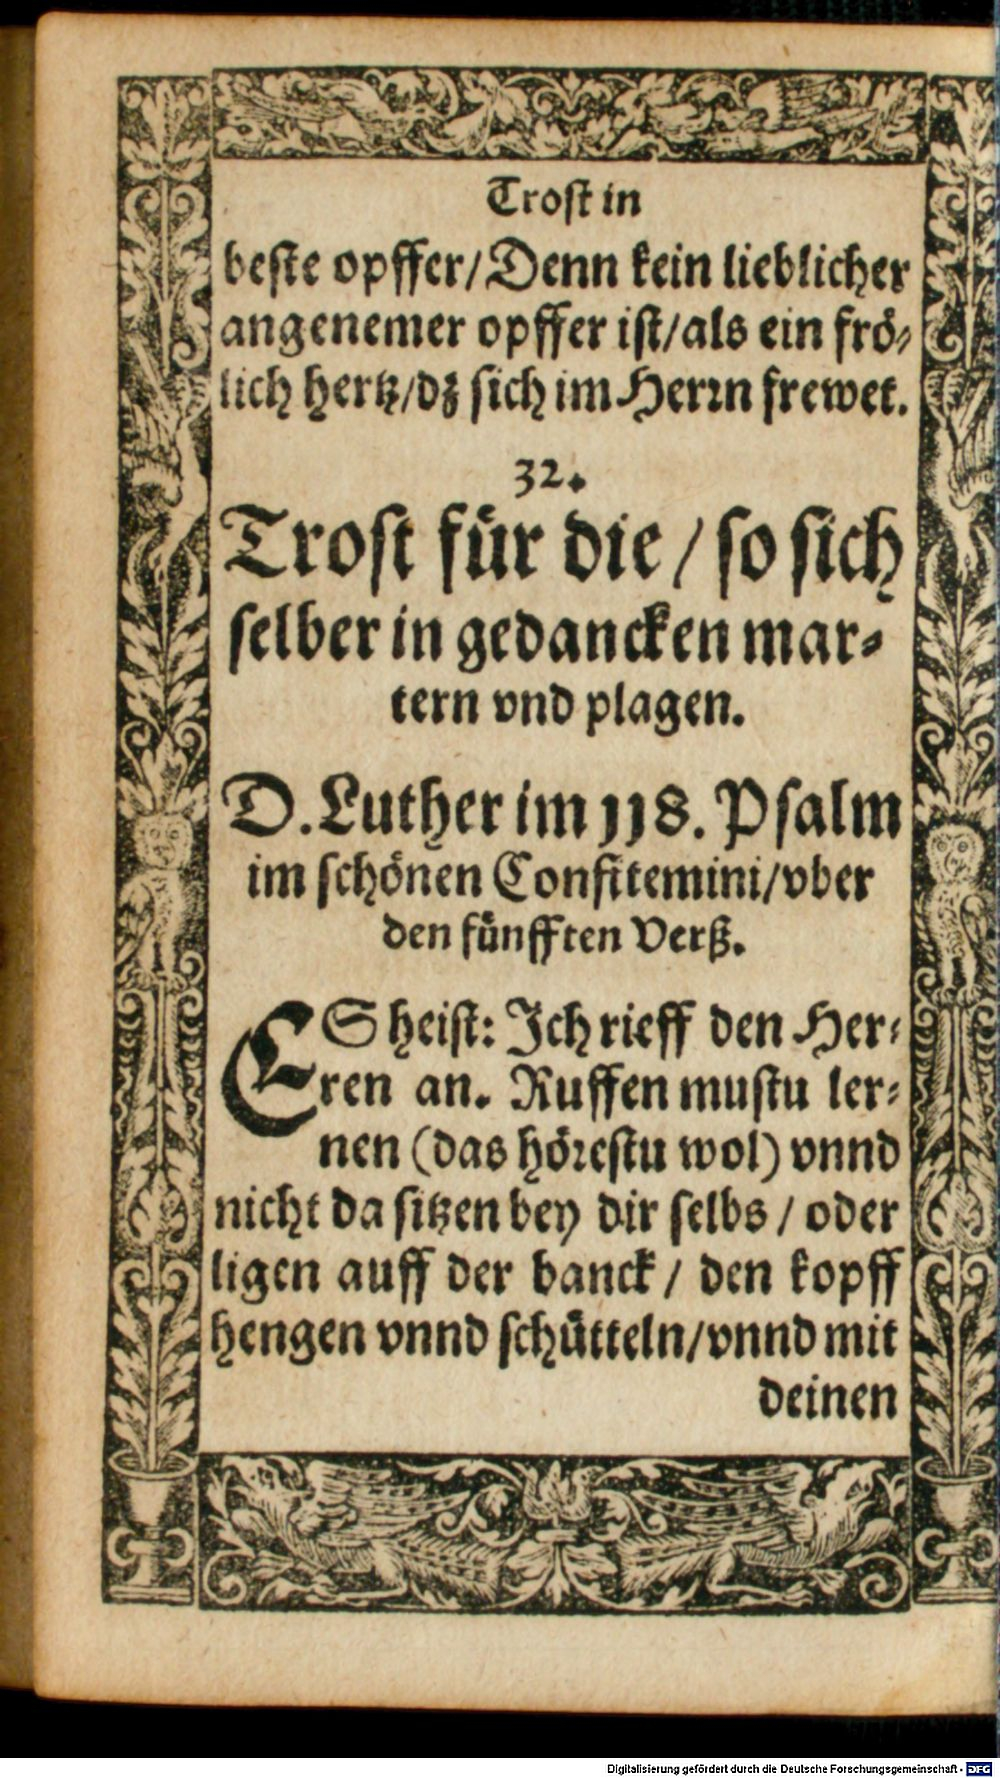 Trost in
beste opffer/Denn kein lieblicher
angenemer opffer ist/als ein frö-
lich hertz/dz sich im Herrn frewet.
32.
Trost für die / so sich
selber in gedancken mar-
tern vnd plagen.
D. Luther im 118. Psalm
im schönen Confitemini/vber
den fünfften Verß.
ES heist: Ich rieff den Her-
ren an. Ruffen mustu ler-
nen (das hörestu wol) vnnd
nicht da sitzen bey dir selbs / oder
ligen auff der banck / den kopff
hengen vnnd schütteln/vnnd mit
deinen
Digitalisierung gefördert durch die Deutsche Forschungsgemeinschaft - DFG